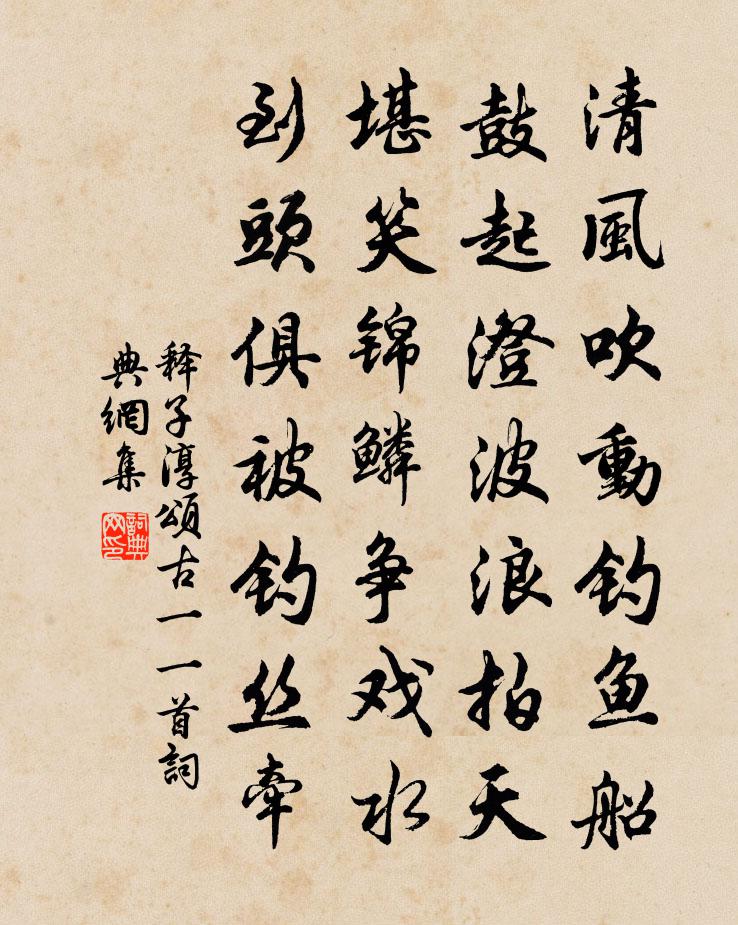 清風吹動钓鱼船
鼓起澄波浪拍天
堪笑锦鳞争戏水
到頭俱被钓丝牽
释子淳頌古一一首詞
典網集
詞典
网印